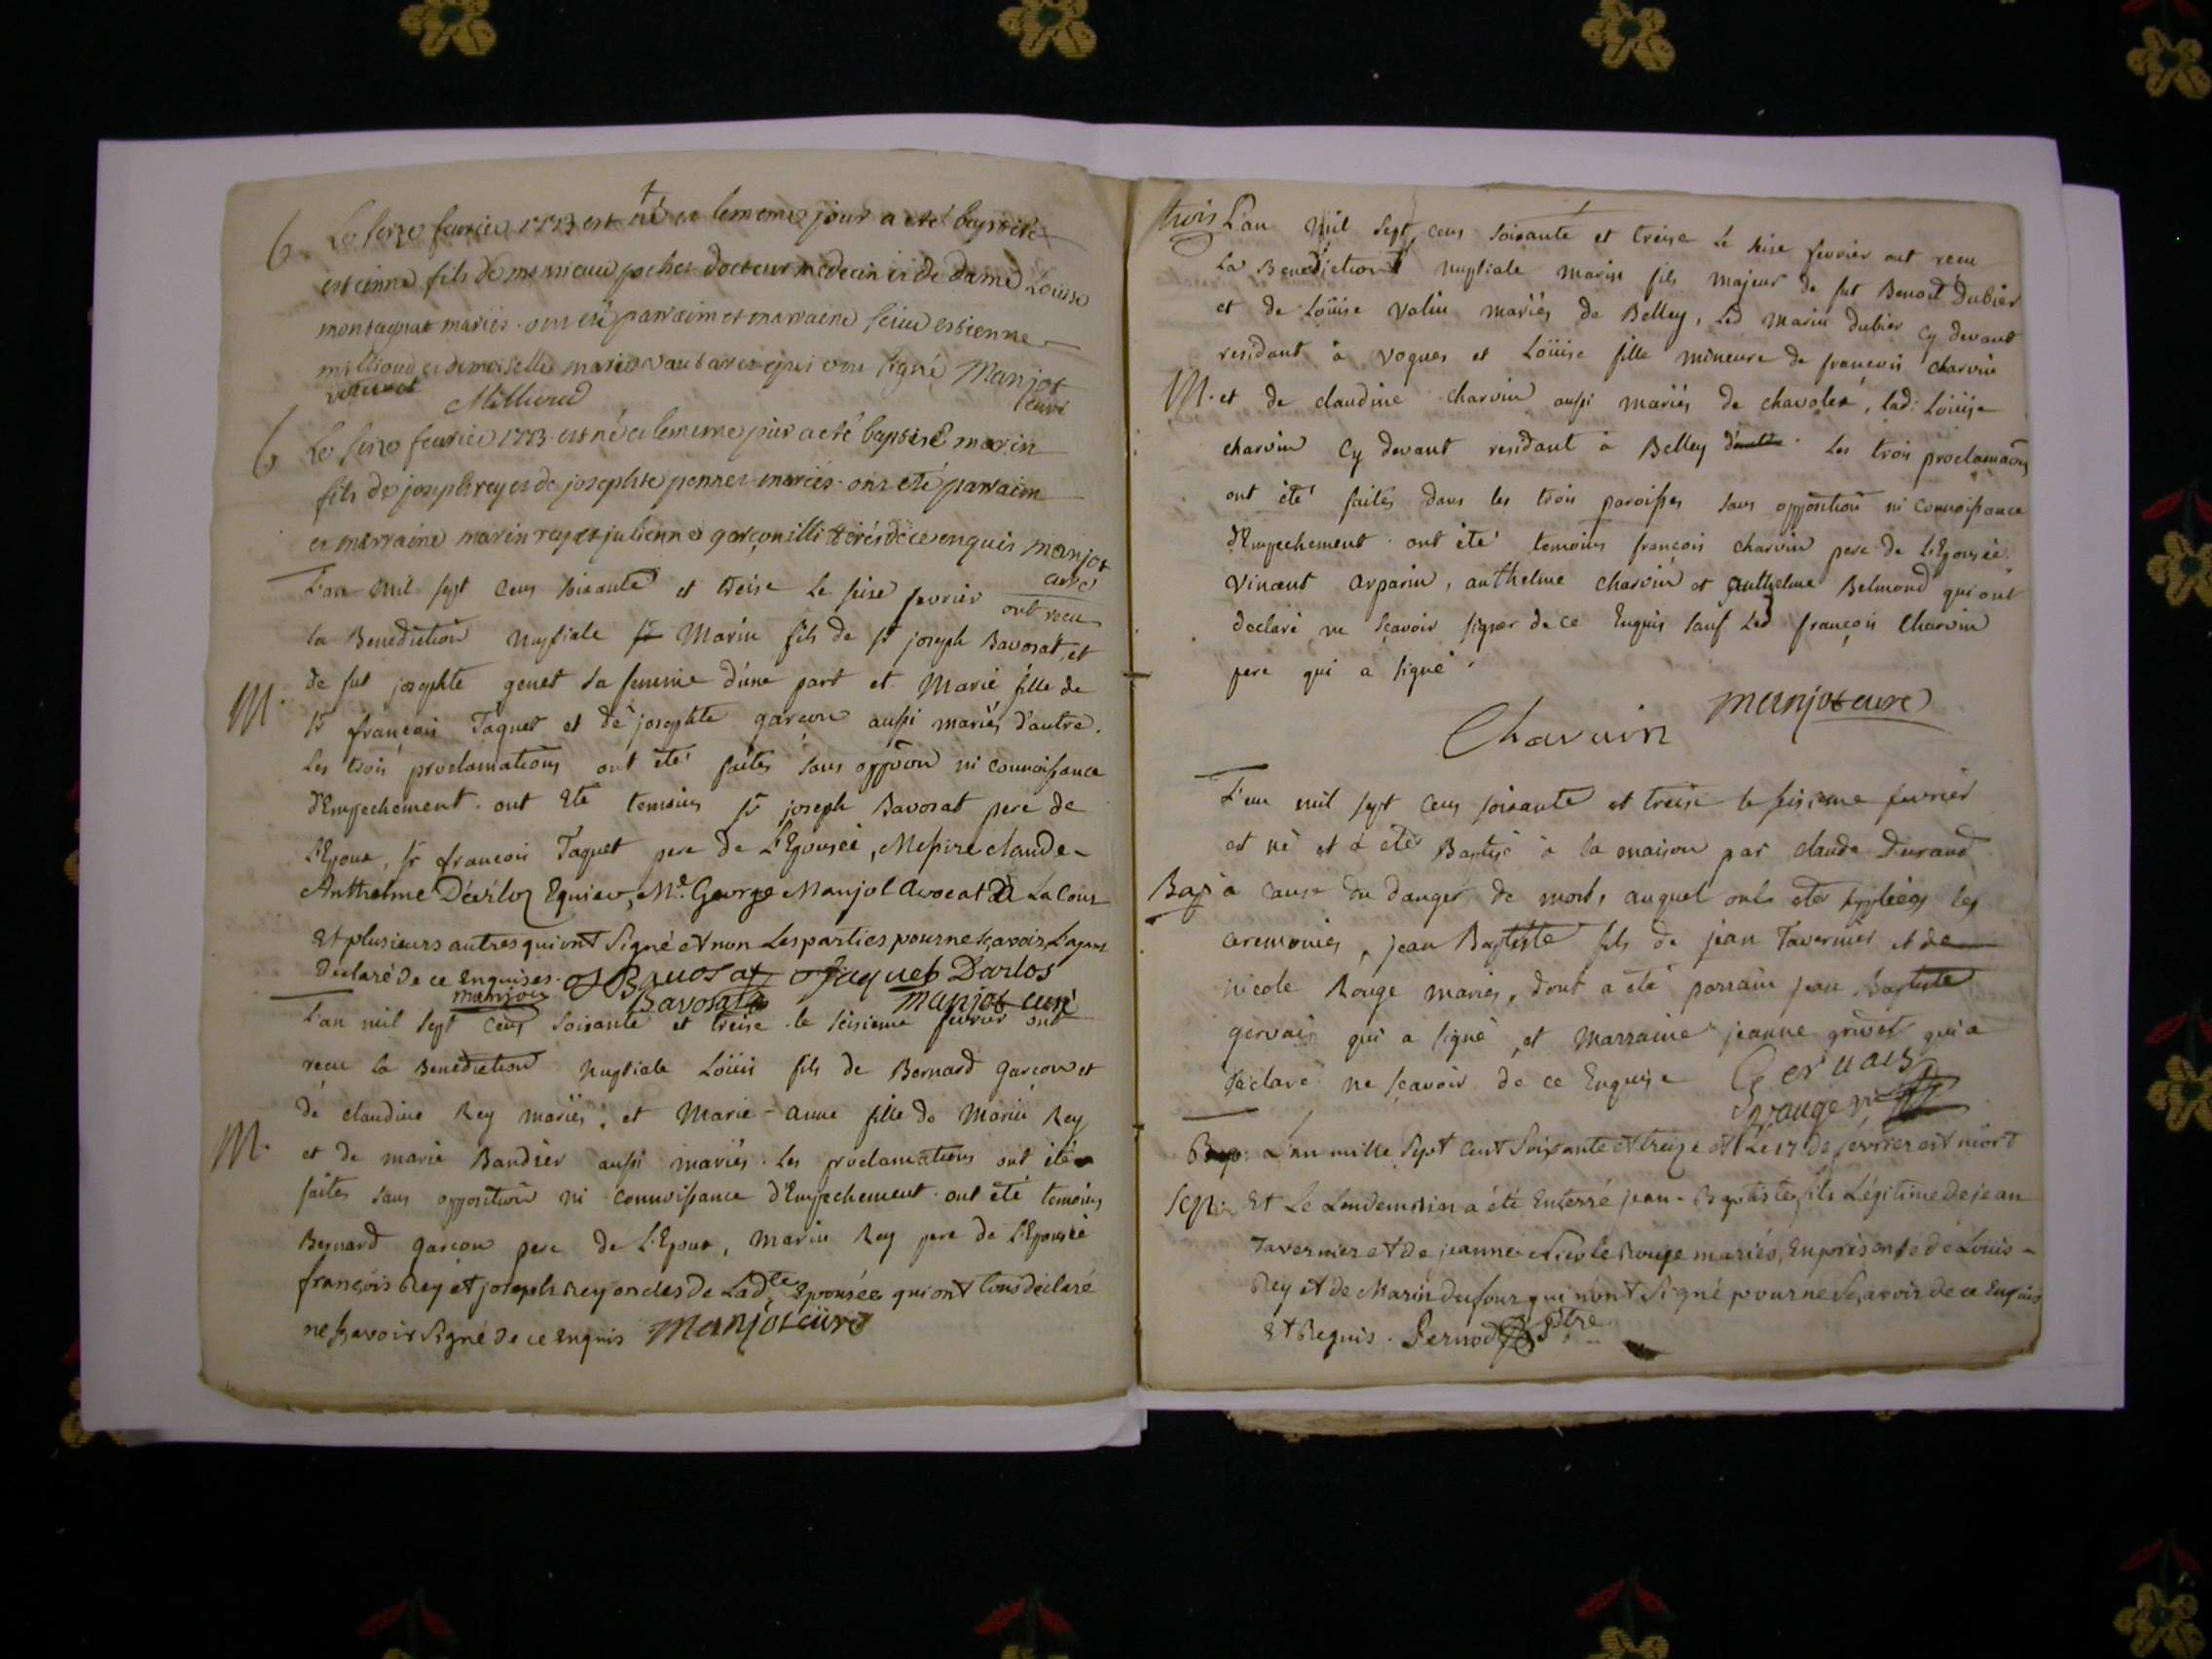 b. Le seize fevrier 1773 est né et le meme jour a eté baptisé
estienne fils de monsieur pochet docteur medecin et de dame Louise
montagnat mariés. ont eté parraim et marraine sieur estienne
millioud et demoiselle marie vaubaret qui ont signé Manjot
Millioud curé
b. Le seize feurier 1773. est né et le meme jour a eté baptisé marin
fils de joseph rey et de josephte pernet mariés. ont eté parraim
et marraine marin rey et julienne garçon illiterés de ce enquis manjot
curé
L'an mil sept cens soixante et treise le seise fevrier ont recu
la Benediction Nuptiale sr Marin fils de sr joseph Bavosat, et
M. de fut josephte genet sa femme d'une part et Marie fille de
sr françois Taquet et de josephte garçon aussi mariés d'autre.
Les trois proclamations ont été faites sans oppōōn ni connoissance
d'Empechement. ont Eté temoins sr joseph Bavosat pere de
L'Epoux, sr françois Taquet pere de L'Epousée, Messire claude-
Anthelme Darloz Equier, Me. George Manjot Avocat à La Cour
Et plusieurs autres qui ont Signé et non Les parties pour ne sçavoir L'ayant
declaré de ce Enquises. J Bauosat f Jaquet Darlos
manjot Bavosat manjot curé
L'an mil sept cens soixante et treise le seisieme fevrier ont
recu la Benediction Nuptiale Loüis fils de Bernard garçon et
de claudine Rey mariés, et Marie-anne fille de Marin Rey
M. et de marie Bandier aussi mariés. Les proclamations ont été
faites sans opposition ni connoissance d'Empechement. ont été temoins
Bernard garcon pere de L'Epoux, marin Rey pere de L'Epousée
françois Rey et joseph Rey oncles de Ladte Epousée qui ont tous déclaré
ne sçavoir Signé de ce Enquis Manjot curé
trois L'an Mil Sept cens soixante et treise Le seise fevrier ont recu
La Benediction Nuptiale marin fils majeur de fut Benoit Dubier
et de Loüise Valin mariés de Belley, Led Marin dubier Cy devant
residant à voques et Loüise fille mineure de françois charvin
M. et de claudine charvin aussi mariés de chavolex, lad: Loüise
charvin Cy devant residant à Belley d'autre. Les trois proclamaōns
ont été faites dans les trois paroisses sans opposition ni connoissance
d'Empechement. ont été temoins françois charvin pere de L'Epousée.
Vincent arparin, anthelme charvin et anthelme Belmond qui ont
declaré ne sçavoir signer de ce Enquis sauf Led françois Charvin
pere qui a signé.
Charuin manjot curé
L'an mil sept cens soixante et treise le seisieme fevrier
est né et a eté Baptisé à la maison par claude Durand
Bap à cause du danger de mort, auquel ont été supléés les
ceremonies, jean Baptiste fils de jean Tavernier et de
nicole Rouge mariés, dont a eté parrain jean Baptiste
gervais qui a signé, et Marraine jeanne grivet qui a
declaré ne sçavoir de ce Enquise Geruais
Bap: L'an mille Sept Cent Soixante et treize et Le 17 de fevrier est mort
Sep: Et Le Lendemain a été Enterré jean-Baptiste fils Légitime de jean
Tavernier et de jeanne Nicole Rouge mariés, En présence de Louis
Rey et de Marin Dufour qui n'ont Signé pour ne Sçavoir de ce Enquis
Et Requis. Pernod Ptre